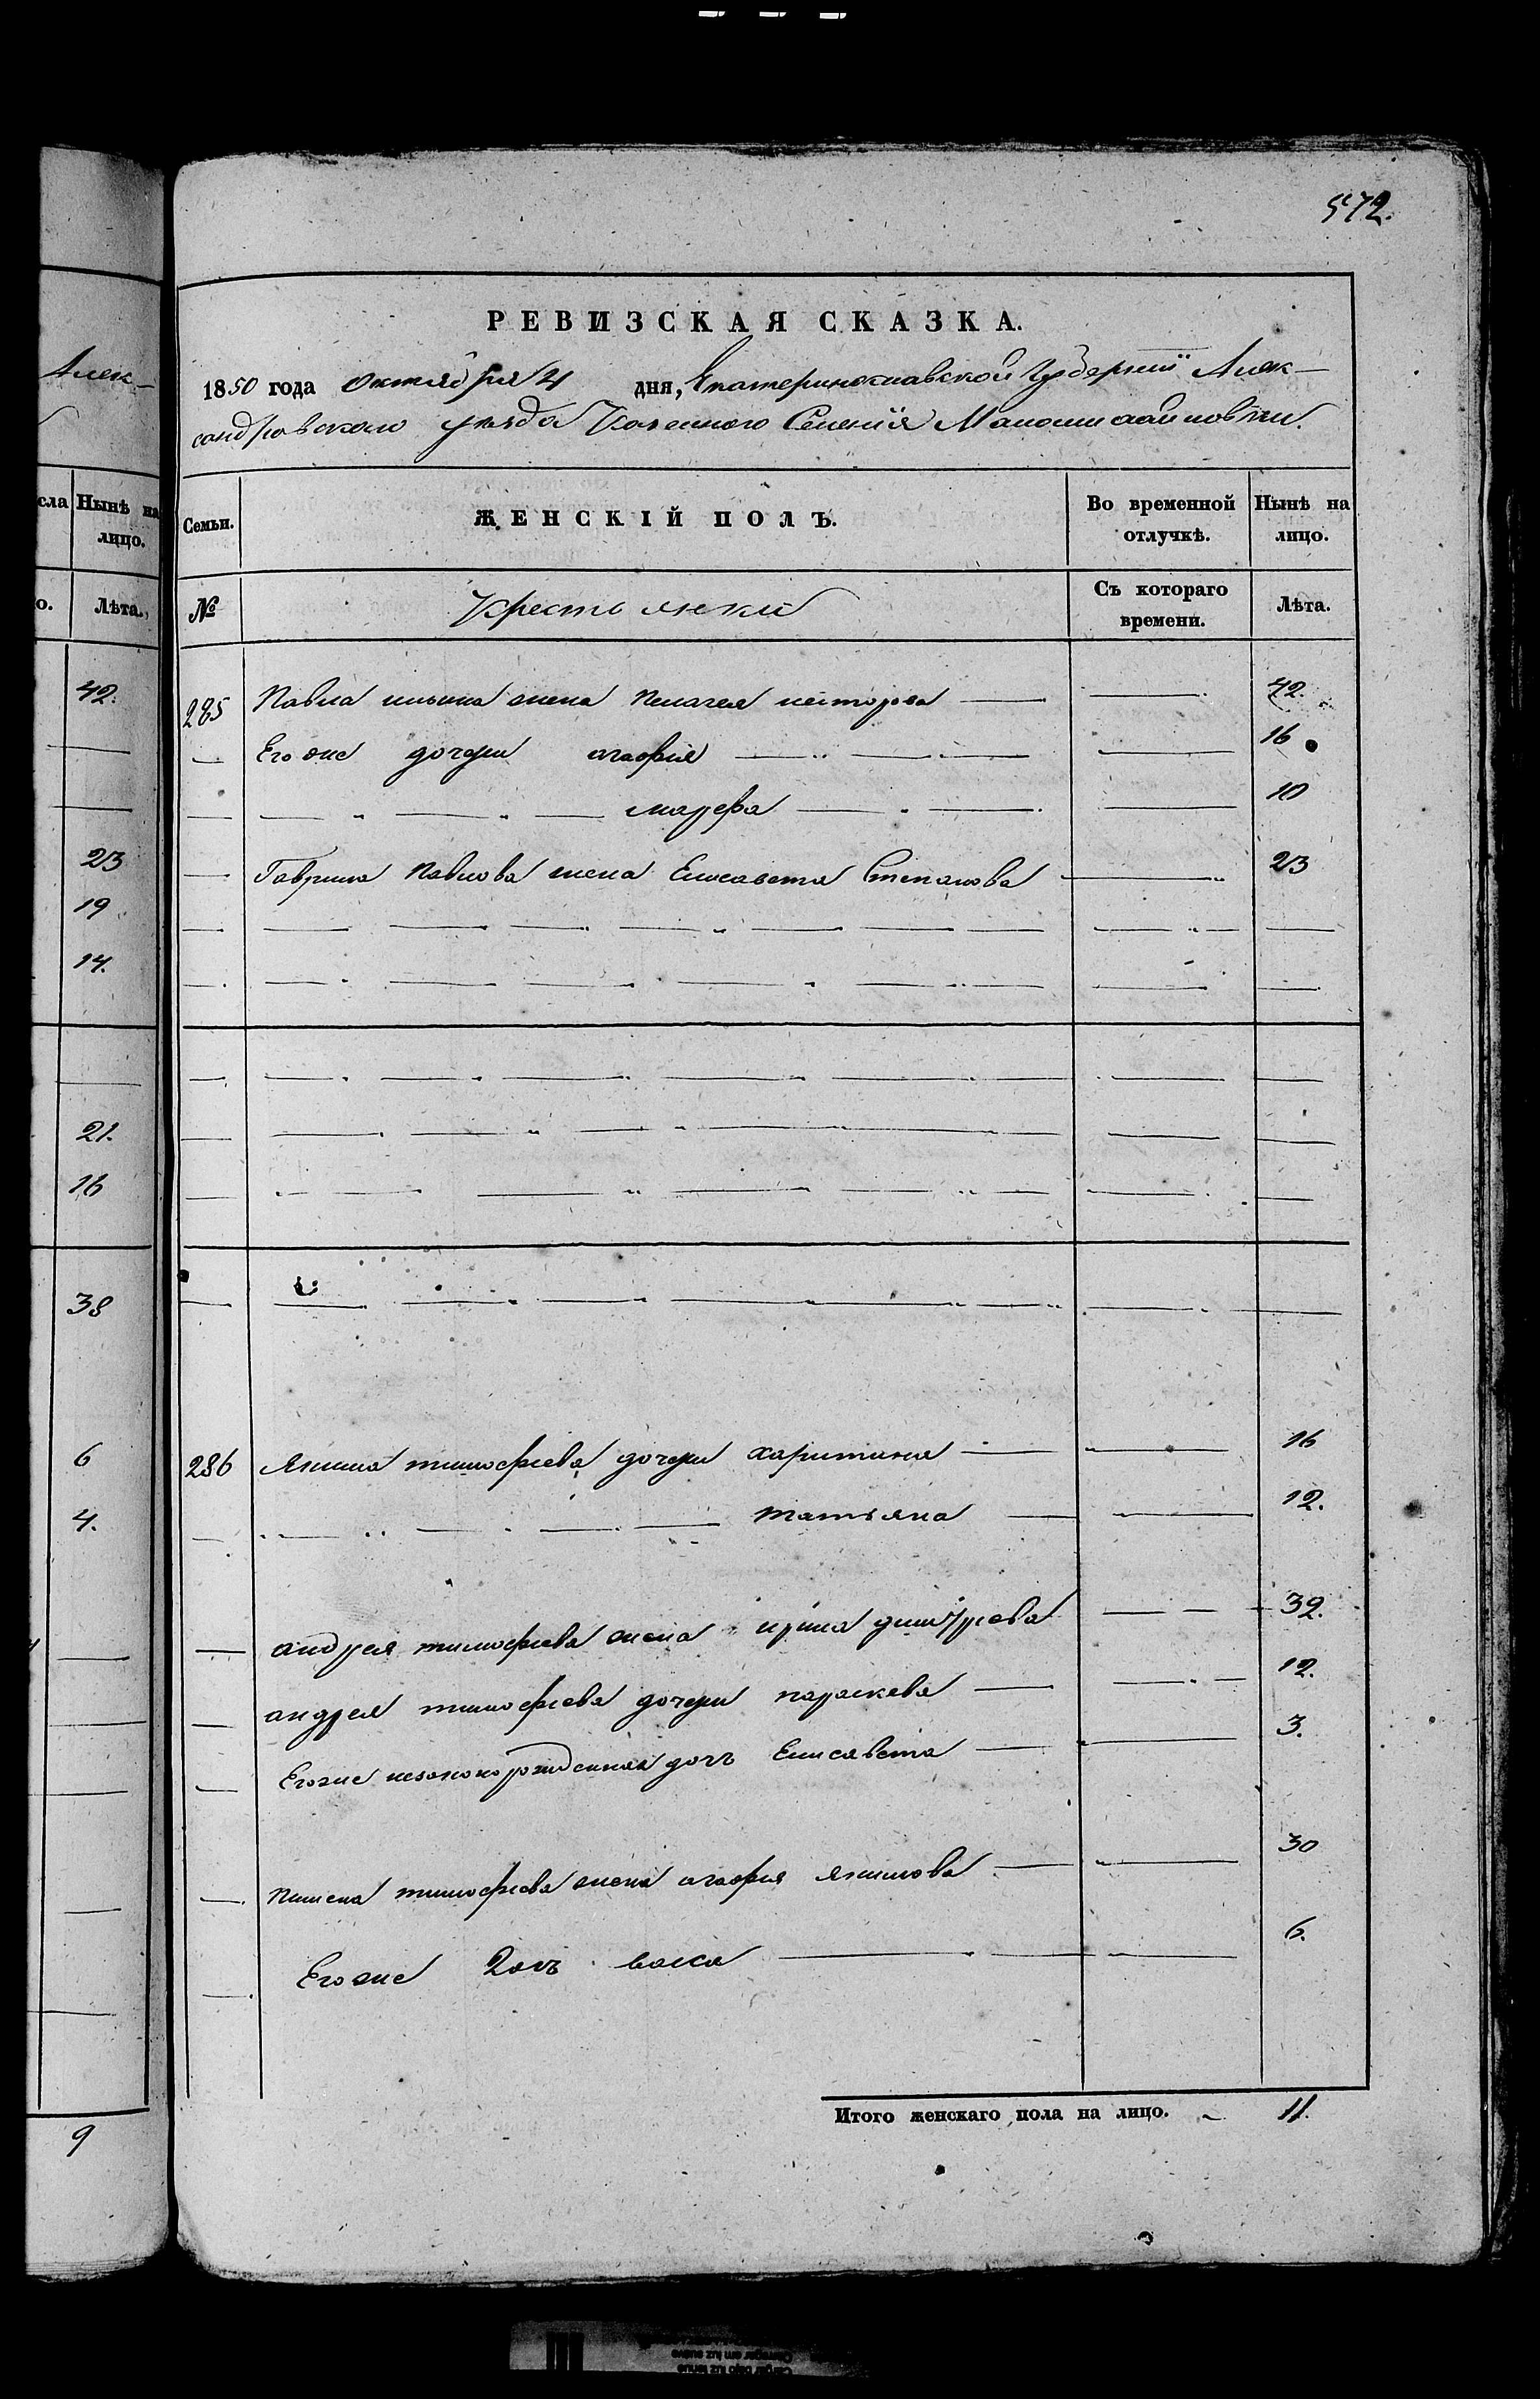 572.
РЕВИЗСКАЯ СКАЗКА.
1850 года Октября 4 дня, Екатеринославской Губернiи Алек-
сандровского уезда Казенного Селенiя
Семьи. ЖЕНСКIЙ ПОЛЪ. Во временной отлучкѣ. Нынѣ на лицо.
№ Крестьянки Съ котораго времени. Лѣта.
285 Павла ильина жена Пелагея несторова 42.
Его же дочери агафия 16
марфа 10
Гаврила Павлова жена Елисавета Степанова 23
286 Якима тимофеева дочери харитина 16
татьяна 12.
андрея тимофеева жена ирина 32.
андрея тимофеева дочери параскева 12.
Егоже незаконорожденная дочъ Елисавета 3.
Пимена тимофеева жена агафия якимова 30
Егоже дочъ васса 6.
Итого женскаго пола на лицо. 11.
Алек-
сла Нынѣ на лицо.
о. Лѣта.
42.
23
19
14.
21.
16
38
6
4.
9